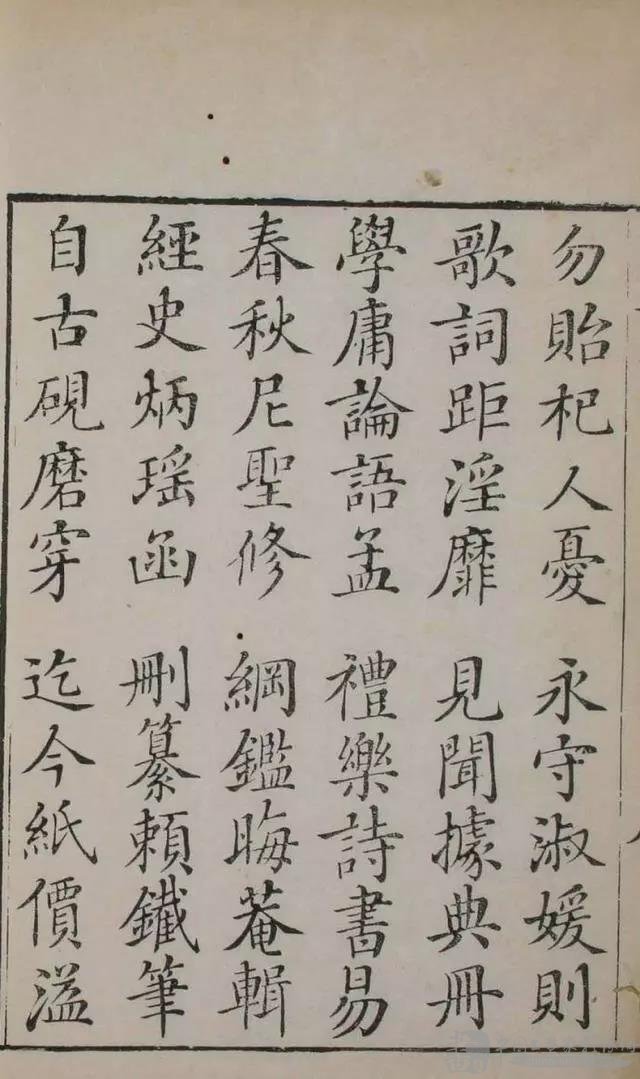 勿貽杞人憂 永守淑媛則
歌詞距淫靡 見聞據典冊
學庸論語孟 禮樂詩書易
春秋尼聖修 綱鑑晦菴輯
經史炳瑶函 刪纂頼鐵筆
自古硯磨穿 迄今紙價溢